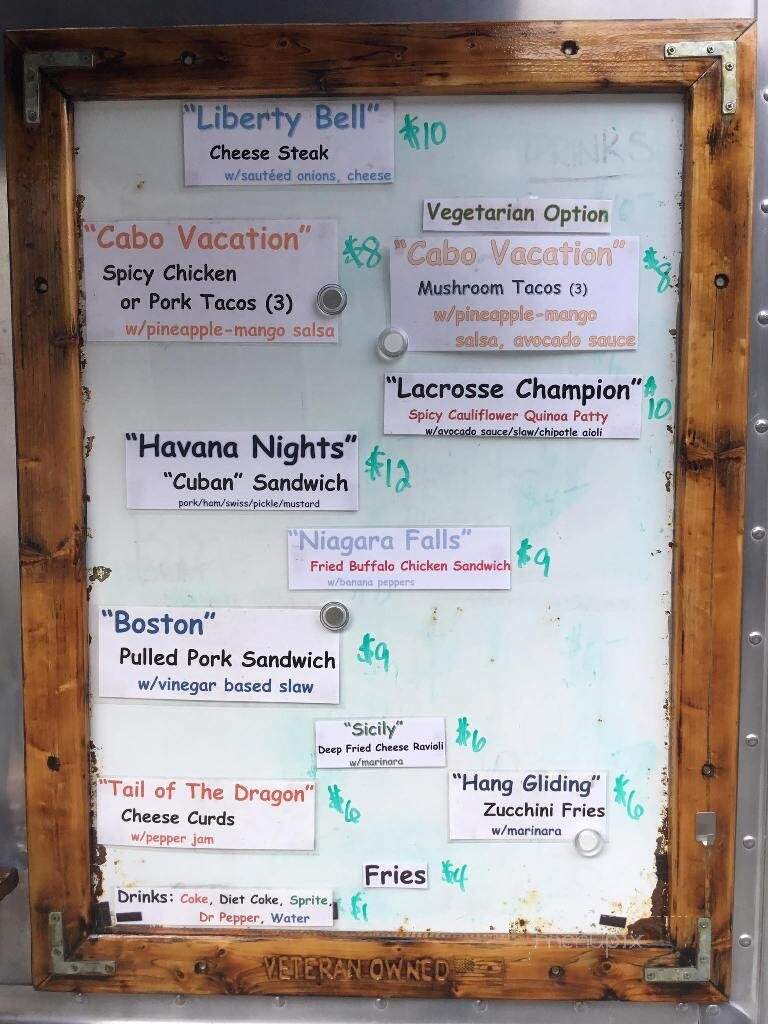 "Liberty Bell" $10
Cheese Steak
w/sautéed onions, cheese
DRINKS
Vegetarian Option
"Cabo Vacation" $8
Spicy Chicken
or Pork Tacos (3)
w/pineapple-mango salsa
"Cabo Vacation" $8
Mushroom Tacos (3)
w/pineapple-mango
salsa, avocado sauce
"Lacrosse Champion" $10
Spicy Cauliflower Quinoa Patty
w/avocado sauce/slaw/chipotle aioli
"Havana Nights" $12
"Cuban" Sandwich
pork/ham/swiss/pickle/mustard
"Niagara Falls" $9
Fried Buffalo Chicken Sandwich
w/banana peppers
"Boston" $9
Pulled Pork Sandwich
w/vinegar based slaw
"Sicily" $6
Deep Fried Cheese Ravioli
w/marinara
"Tail of The Dragon" $6
Cheese Curds
w/pepper jam
"Hang Gliding" $6
Zucchini Fries
w/marinara
Fries $4
Drinks: Coke, Diet Coke, Sprite, $1
Dr Pepper, Water
menupix
VETERAN OWNED